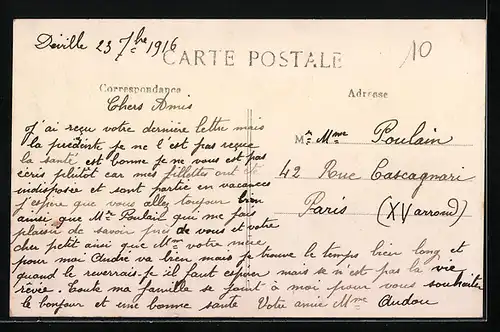 Déville 23 7bre 1916
10
CARTE POSTALE
Correspondance
Adresse
Chers Amis
J'ai reçu votre dernière lettre mais
la prédénte je ne l'est pas reçue
la santé est bonne je ne vous est pas
écris plutôt car mes fillettes ont été
indisposée et sont partie en vacances
j'espère que vous allez toujour bien
ainsi que Mr Poulail qui me fais
plaisir de savoir près de vous et votre
cher petit ainsi que Mme votre mère
pour moi André va bien mais je trouve le temps bien long et
quand le reverrais-je il faut espérer mais se n'est pas la vie
rêvée. Toute ma famille se joint à moi pour vous souhaiter
le bonjour et une bonne santé Votre amie Mme Audou
Mr Mme Poulain
42 Rue Castagnari
Paris (XV arrond)